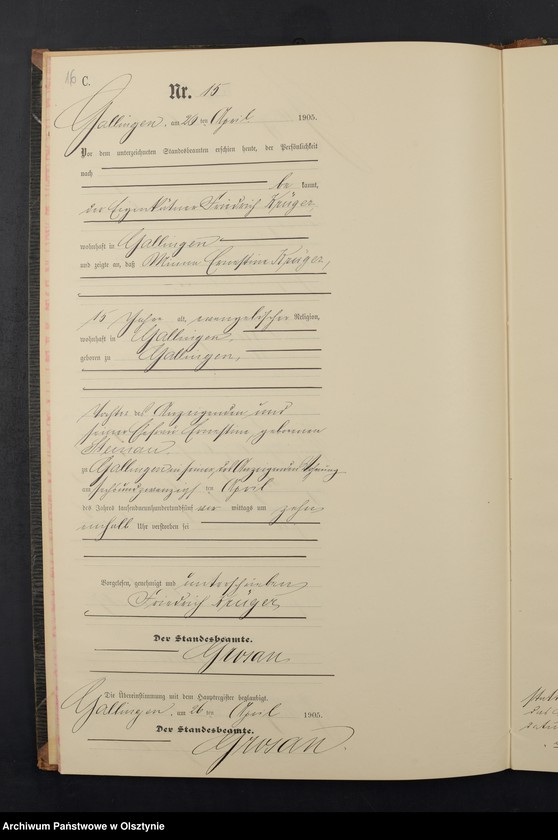 16 C.
Nr. 15
Gallingen, am 26 ten April 1905.
Vor dem unterzeichneten Standesbeamten erschien heute, der Persönlichkeit
nach
be kannt,
der Eigenkätner Friedrich Krüger,
wohnhaft in Gallingen
und zeigte an, daß Minna Ernestine Krüger,
15 Jahre alt, evangelischer Religion,
wohnhaft in Gallingen,
geboren zu Gallingen,
Tochter des Anzeigenden und
seiner Ehefrau Ernestine, geborenen
zu Gallingen in seiner, des Anzeigenden Wohnung
am sechsundzwanzigsten April
des Jahres tausendneunhundertundfünf vor mittags um zehn
einhalb Uhr verstorben sei
Vorgelesen, genehmigt und unterschrieben
Friedrich Krüger,
Der Standesbeamte.
Grosau
Die Übereinstimmung mit dem Hauptregister beglaubigt.
Gallingen, am 26 ten April 1905.
Der Standesbeamte.
Grosau.
Archiwum Państwowe w Olsztynie